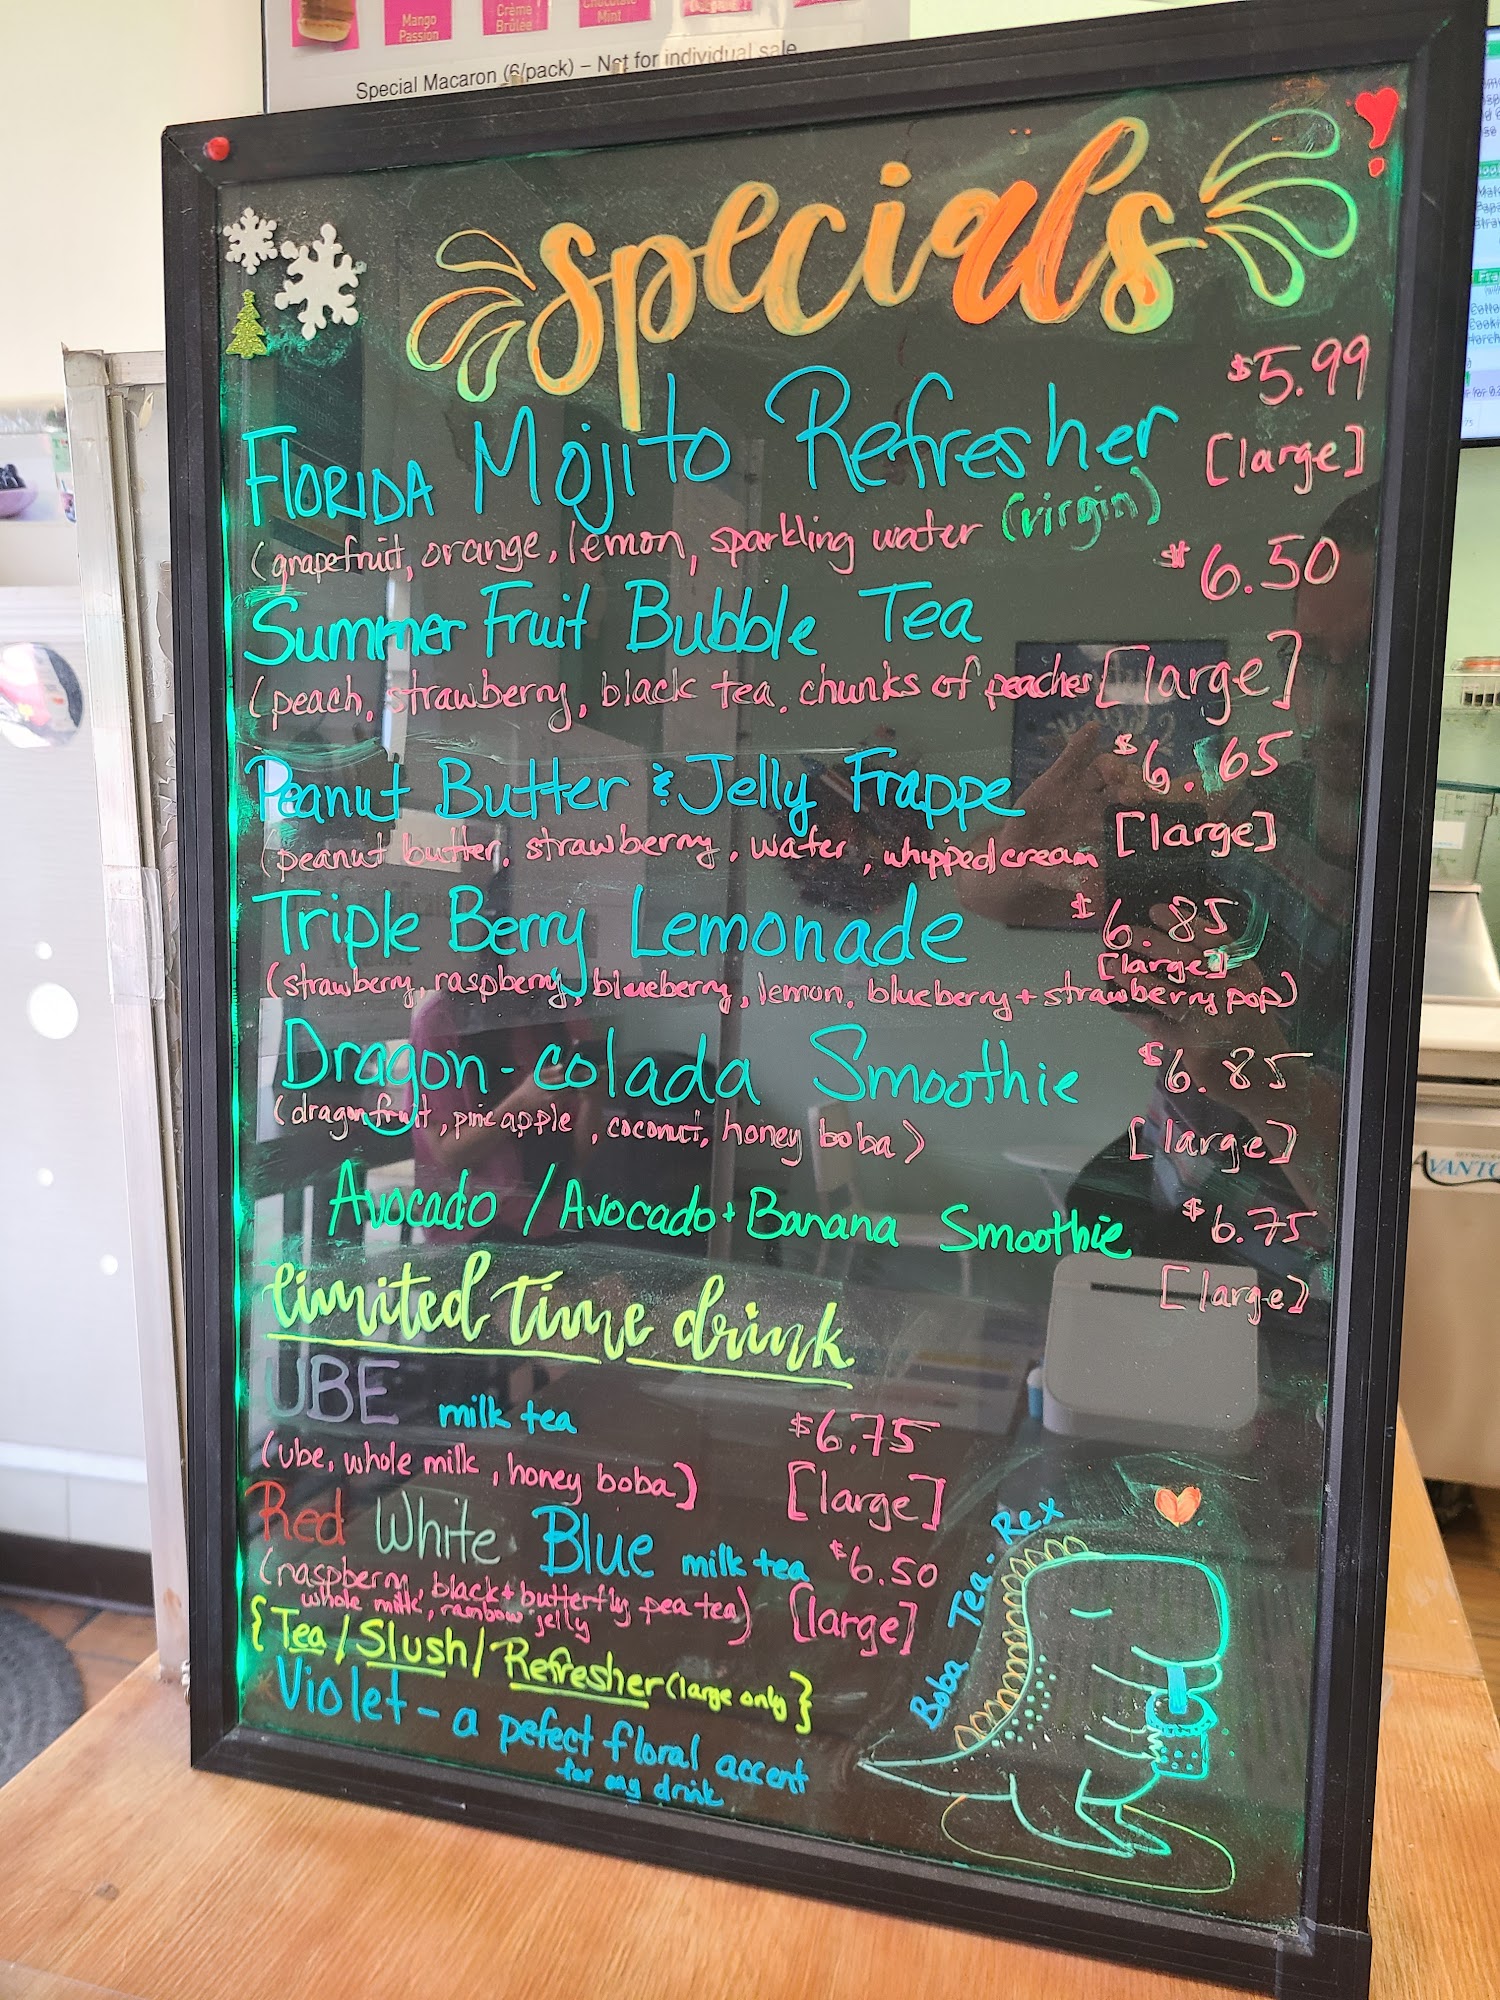 Mango Passion
Crème Brûlée
Chocolate Mint
Special Macaron (6/pack) – Not for individual sale
Specials
$5.99
FLORIDA Mojito Refresher
[large]
(grapefruit, orange, lemon, sparkling water (virgin)
$6.50
Summer Fruit Bubble Tea
(peach, strawberry, black tea, chunks of peaches [large]
Peanut Butter & Jelly Frappe $6.65
(peanut butter, strawberry, water, whipped cream [large]
Triple Berry Lemonade $6.85
[large]
(strawberry, raspberry, blueberry, lemon, blueberry + strawberry pop)
Dragon-colada Smoothie $6.85
(dragonfruit, pineapple, coconut, honey boba) [large]
Avocado / Avocado + Banana Smoothie $6.75
[large]
limited time drink
UBE milk tea $6.75
(ube, whole milk, honey boba) [large]
Red White Blue milk tea $6.50
(raspberry, black + butterfly pea tea) [large]
whole milk, rainbow jelly
{Tea / Slush / Refresher (large only}
Violet - a pefect floral accent
for any drink
Boba Tea-Rex
AVANTCO